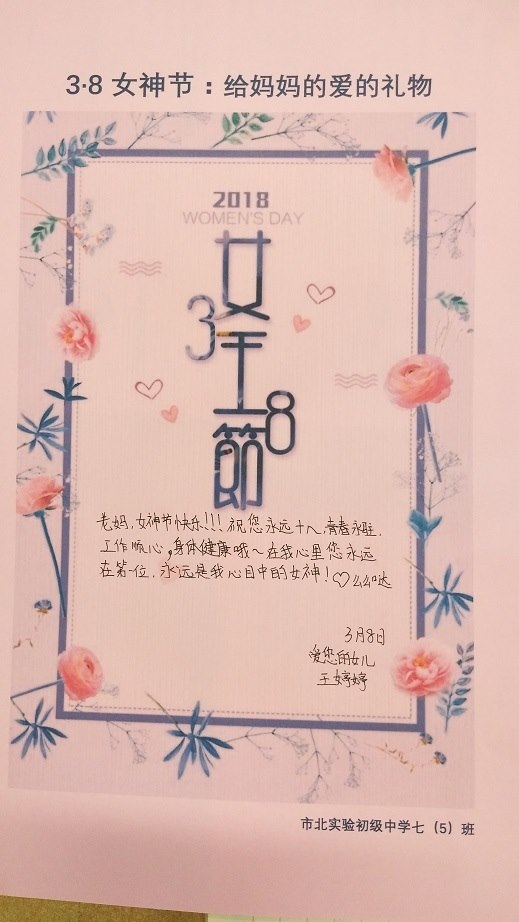 3·8 女神节：给妈妈的爱的礼物
2018
WOMEN'S DAY
女
3
王
8
節
老妈，女神节快乐!!! 祝您永远十八，青春永驻，
工作顺心，身体健康哦～在我心里您永远
在第一位，永远是我心目中的女神！♡么么哒
3月8日
爱您的女儿
王婷婷
市北实验初级中学七（5）班